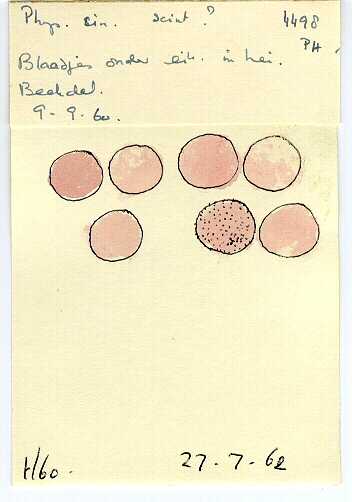 Phys. cin. scint ? 4498
PH
Blaadjes onder eik. in hei.
Beekdal.
9-9-60.
t/60. 27-7-62